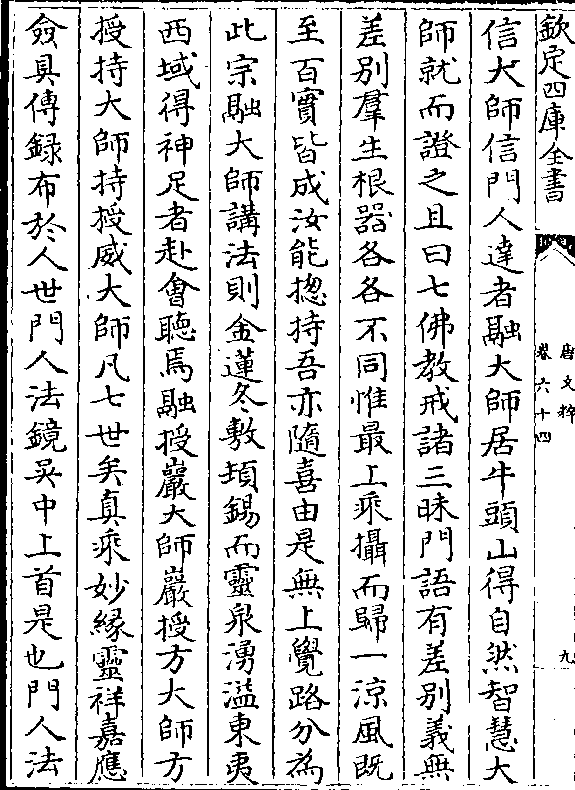 欽定四庫全書
唐文粹
卷六十四
九
信大師信門人達者融大師居牛頭山得自然智慧大
師就而證之且曰七佛教戒諸三昧門語有差別義無
差別羣生根器各各不同惟最上乘攝而歸一涼風既
至百實皆成汝能揔持吾亦隨喜由是無上覺路分為
此宗融大師講法則金蓮冬敷頓錫而靈泉湧溢東夷
西域得神足者赴㑹聽焉融授巖大師巖授方大師方
授持大師持授威大師凡七世矣真乘妙緣靈祥嘉應
僉具傳録布於人世門人法鏡吳中上首是也門人法